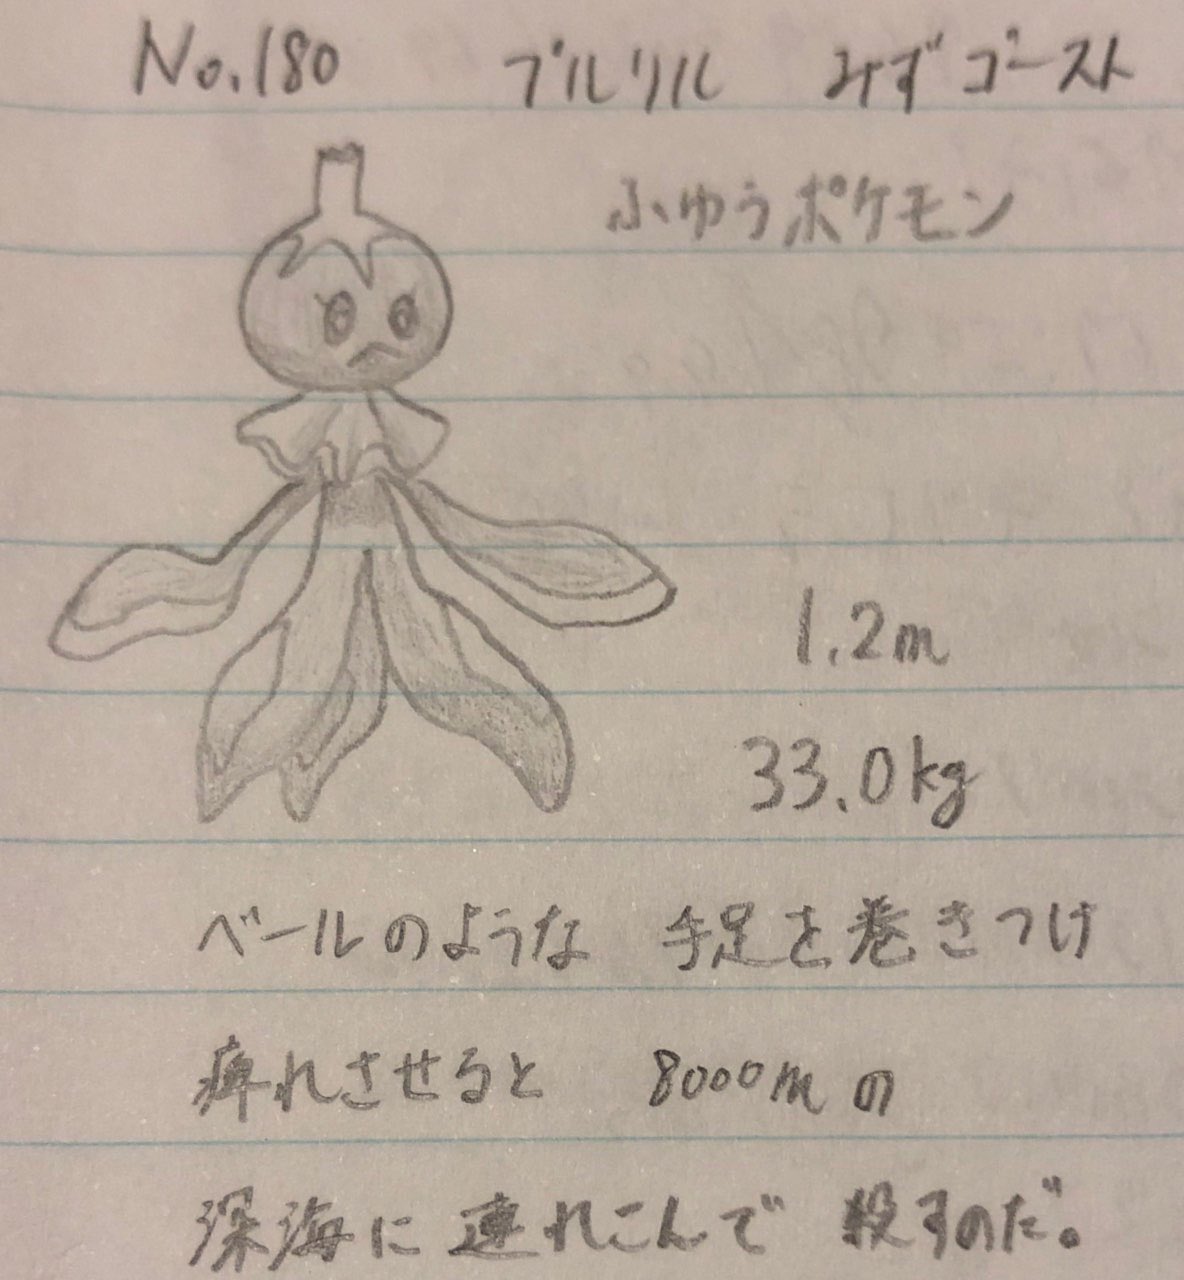 No.180 プルリル みずゴースト
ふゆうポケモン
1.2m
33.0kg
ベールのような 手足を巻きつけ
痺れさせると 8000mの
深海に連れこんで 殺すのだ。